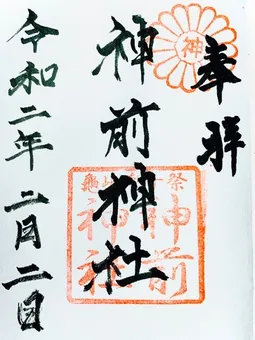 奉拝
神
神前神社
神前
神社
令和二年二月二日